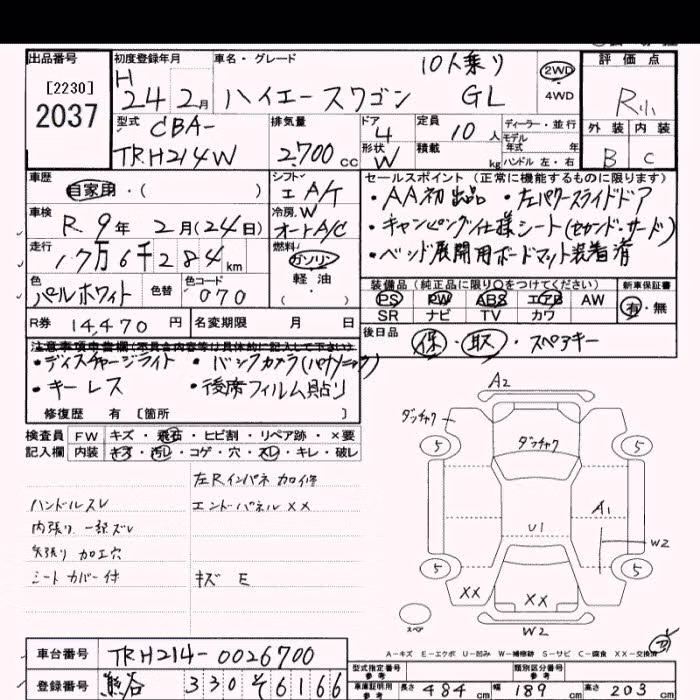 出品番号
[2230]
2037
初度登録年月
H
24 2月
車名・グレード
10人乗り
ハイエースワゴン GL
2WD
4WD
評価点
R小
外装 内装
B C
型式
CBA-
TRH214W
排気量
2,700 cc
ドア 4
形状 W
定員 10 人
積載 kg
ディーラー・並行
モデル
年式 年
ハンドル 左・右
車歴
自家用・( )
シフト
エ A/T
セールスポイント (正常に機能するものに限ります)
・AA初出品 ・左パワースライドドア
・キャンピング仕様シート(セカンド・サード)
・ベッド展開用ボードマット装着済
車検
R. 9年 2月(24日)
冷房.W
オートA/C
走行
17万6千284km
燃料
ガソリン
軽油
・( )
色
パールホワイト
色替
色コード
070
装備品(純正品に限り○をつけてください)
新車保証書
PS PW ABS エアB AW
有・無
SR ナビ TV カワ
R券 14,470 円
名変期限 月 日
後日品
保・取・スペアキー
注意事項申書欄(不具合内容等は具体的に記入して下さい)
・ディスチャージライト ・バックカメラ(パナソニック)
・キーレス ・後席フィルム貼り
修復歴 有 [箇所 ]
検査員 FW キズ・飛石・ヒビ割・リペア跡・×要
記入欄 内装 キズ・汚レ・コゲ・穴・スレ・キレ・破レ
左Rインパネ加修
ハンドルスレ エンドパネルXX
内張り一部ズレ
天張り加工穴
シートカバー付 キズ E
A2
ダッチャク
ダッチャク
5 5
A1
U1
W2
5 5
XX
XX
スペア
W2
A-キズ E-エクボ U-凹み W-補修跡 S-サビ C-腐食 XX-交換済
車台番号 TRH214-0026700
登録番号 熊谷 330 そ 6166
型式指定番号
類別区分番号
参考
車庫証明用
参考
長さ 484 cm 幅 189 cm 高さ 203 cm